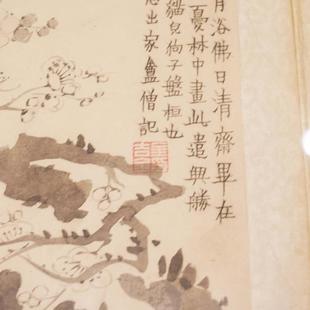 月浴佛日清齋畢在
憂林中畫此遣興勝
貓兒狗子盤桓也
出家盦僧記